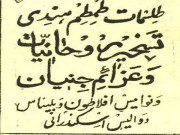 طلسمات طمطم هندي
تسخير روحانيات
وعزائم جنيان
ونواميس افلاطون وبليناس
دواليس اسكندراني